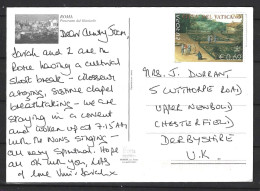 ROMA
Dear Aunty Jean,
Sarah and I are in
Rome having a cultural
short break - Colosseum
amazing, Sistine Chapel
breathtaking - we are
staying in a convent
and woken up at 7.15AM
with the nuns singing -
all very spiritual. Hope all
OK with you, lots
of love Viv + Sarah x
VATICANE
MRS. J. DURRANT
5 CUTTHORPE ROAD
UPPER NEWBOLD
CHESTERFIELD
DERBYSHIRE
U.K